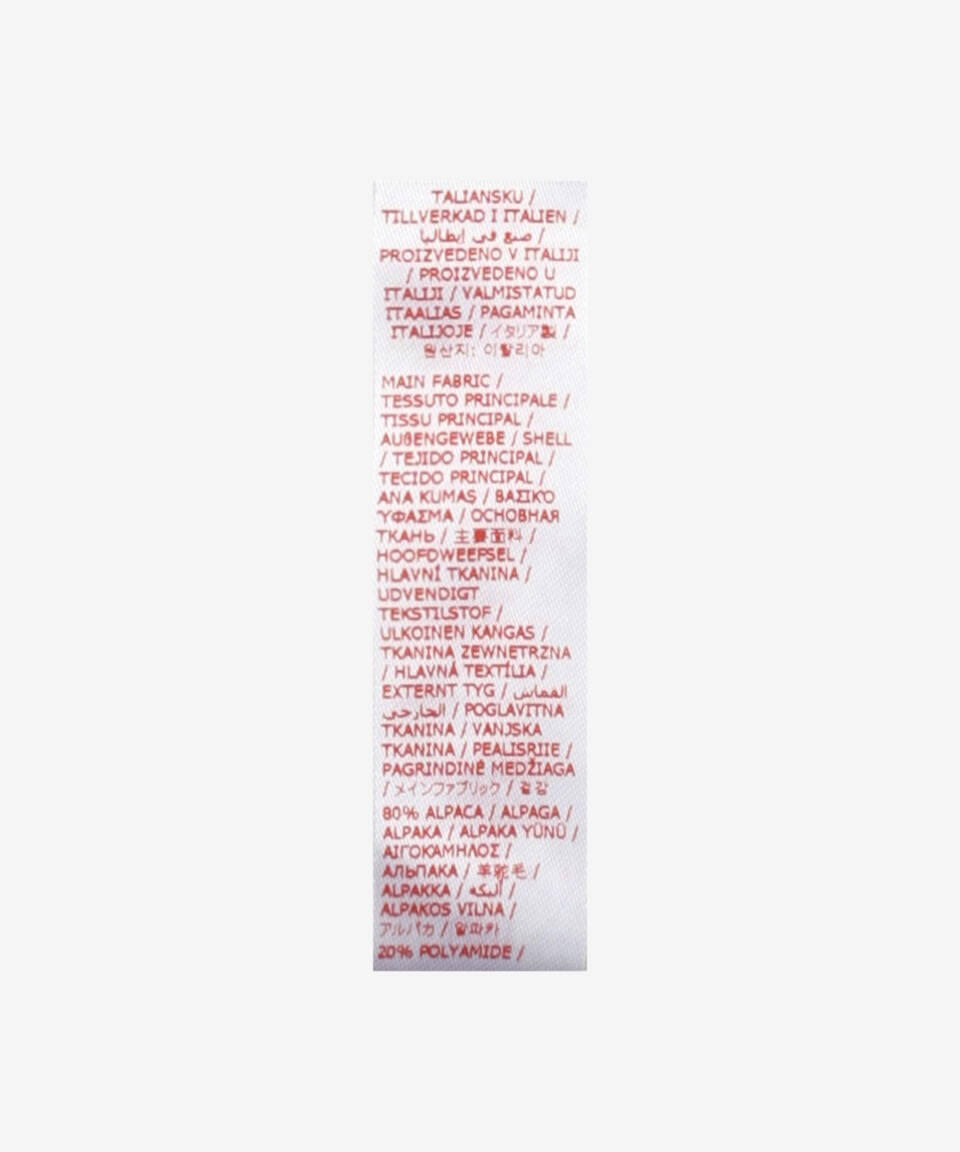 TALIANSKU /
TILLVERKAD I ITALIEN /
صنع في إيطاليا /
PROIZVEDENO V ITALIJI
/ PROIZVEDENO U
ITALIJI / VALMISTATUD
ITAALIAS / PAGAMINTA
ITALIJOJE / イタリア製 /
원산지: 이탈리아
MAIN FABRIC /
TESSUTO PRINCIPALE /
TISSU PRINCIPAL /
AUßENGEWEBE / SHELL
/ TEJIDO PRINCIPAL /
TECIDO PRINCIPAL /
ANA KUMAŞ / ΒΑΣΙΚΌ
ΎΦΑΣΜΑ / ОСНОВНАЯ
ТКАНЬ / 主要面料 /
HOOFDWEEFSEL /
HLAVNÍ TKANINA /
UDVENDIGT
TEKSTILSTOF /
ULKOINEN KANGAS /
TKANINA ZEWNĘTRZNA
/ HLAVNÁ TEXTÍLIA /
EXTERNT TYG / القماش
الخارجي / POGLAVITNA
TKANINA / VANJSKA
TKANINA / PEALISRIIE /
PAGRINDINĖ MEDŽIAGA
/ メインファブリック / 겉감
80% ALPACA / ALPAGA /
ALPAKA / ALPAKA YÜNÜ /
ΑΙΓΟΚΑΜΗΛΟΣ /
АЛЬПАКА / 羊驼毛 /
ALPAKKA / ألبكة /
ALPAKOS VILNA /
アルパカ / 알파카
20% POLYAMIDE /